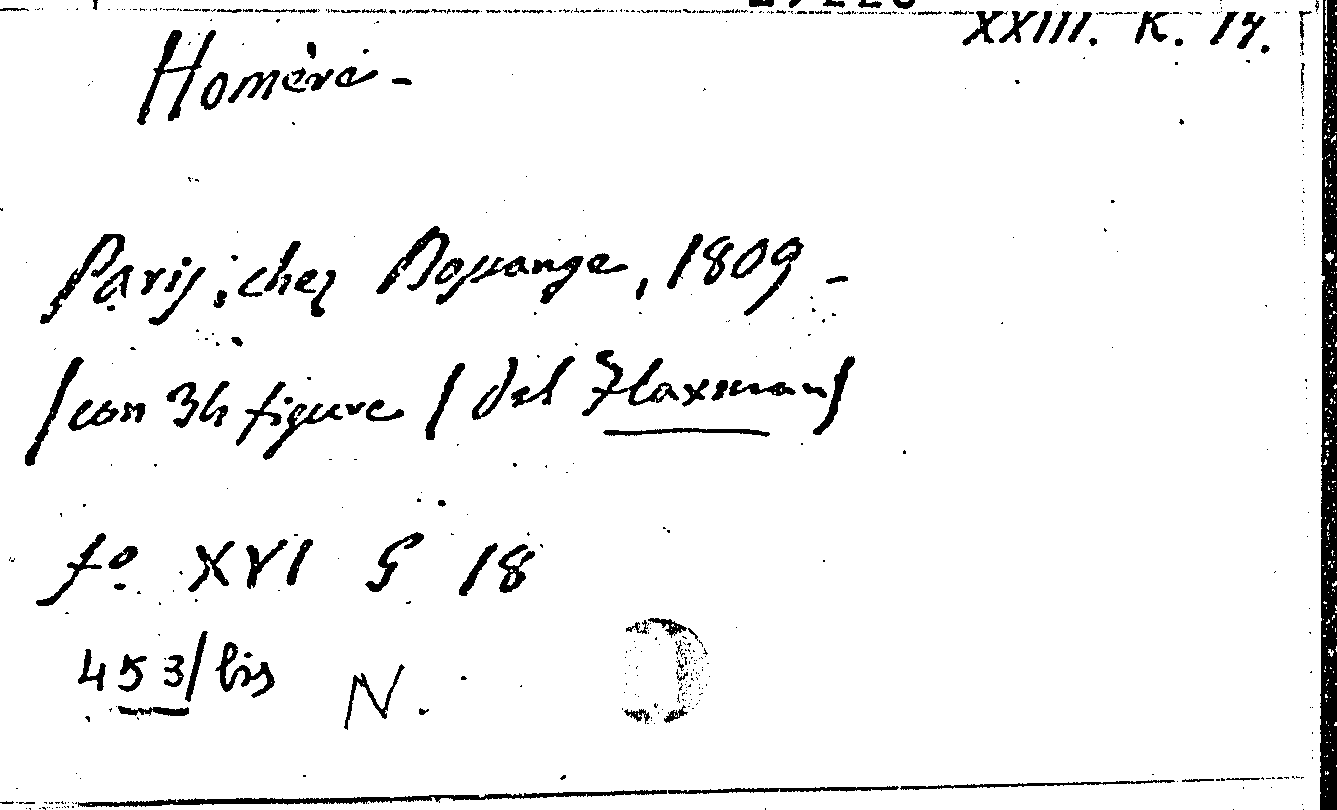 XXIII. K. 14.
Homère -
Paris, chez Bossange, 1809 -
(con 34 figure ( del Flaxman)
fo. XVI G 18
453/bis N.